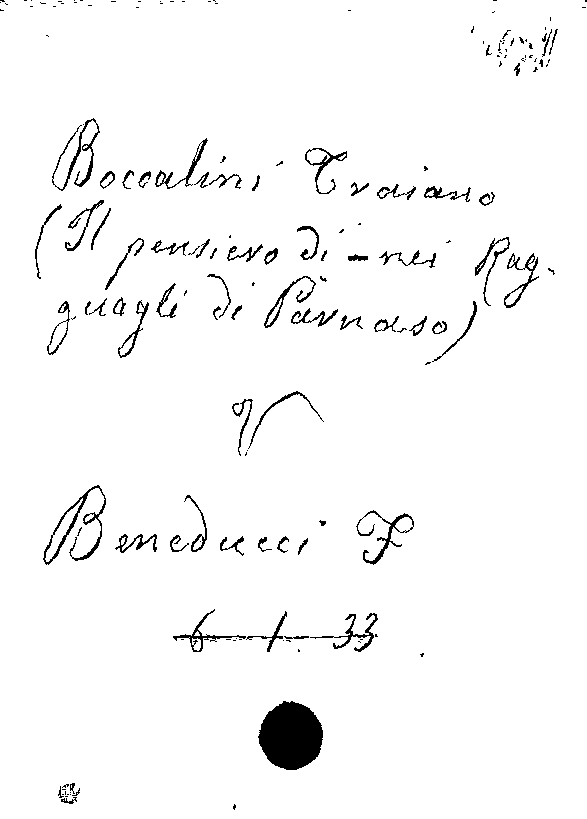 Boccalini Traiano
(Il pensiero di - nei Rag-
guagli di Parnaso)
V
Beneducci F
6 1 33